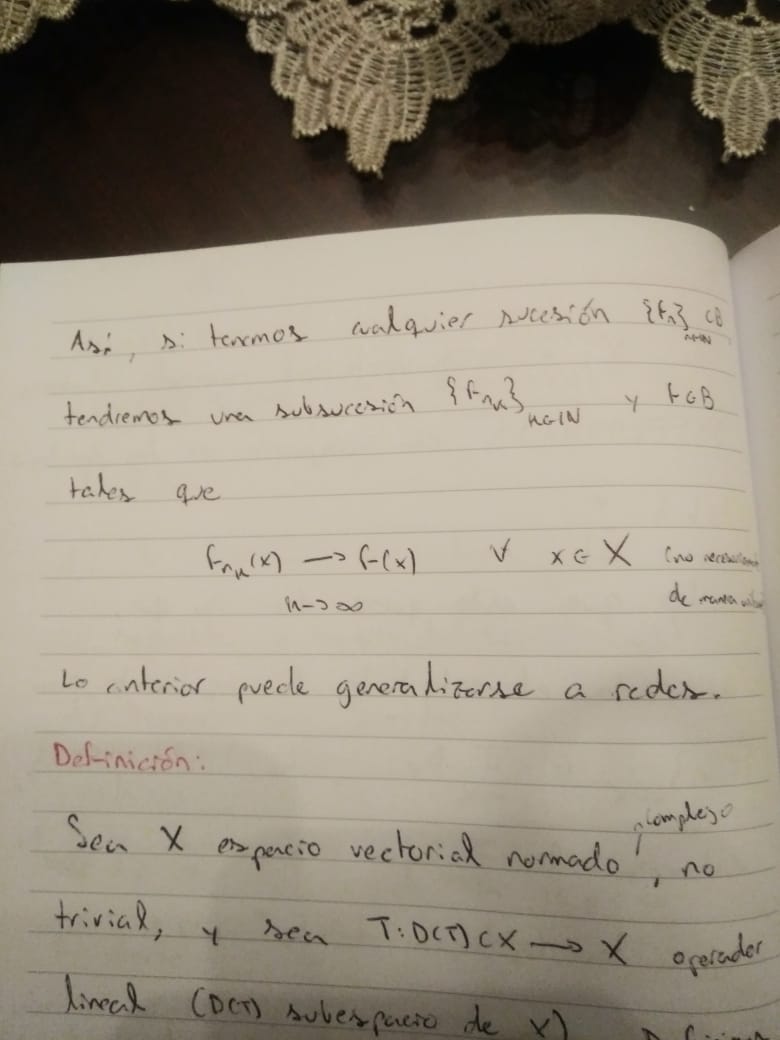 Así, si tenemos cualquier sucesión {fₙ}ₙ∈ℕ ⊂ B
tendremos una subsucesión {fₙₖ}ₖ∈ℕ y f ∈ B
tales que
fₙₖ(x) → f(x) ∀ x ∈ X (no
n→∞ de manera
Lo anterior puede generalizarse a redes.
Definición:
Sea X espacio vectorial normado, complejo, no
trivial, y sea T: D(T) ⊂ X → X operador
lineal (D(T) subespacio de X)